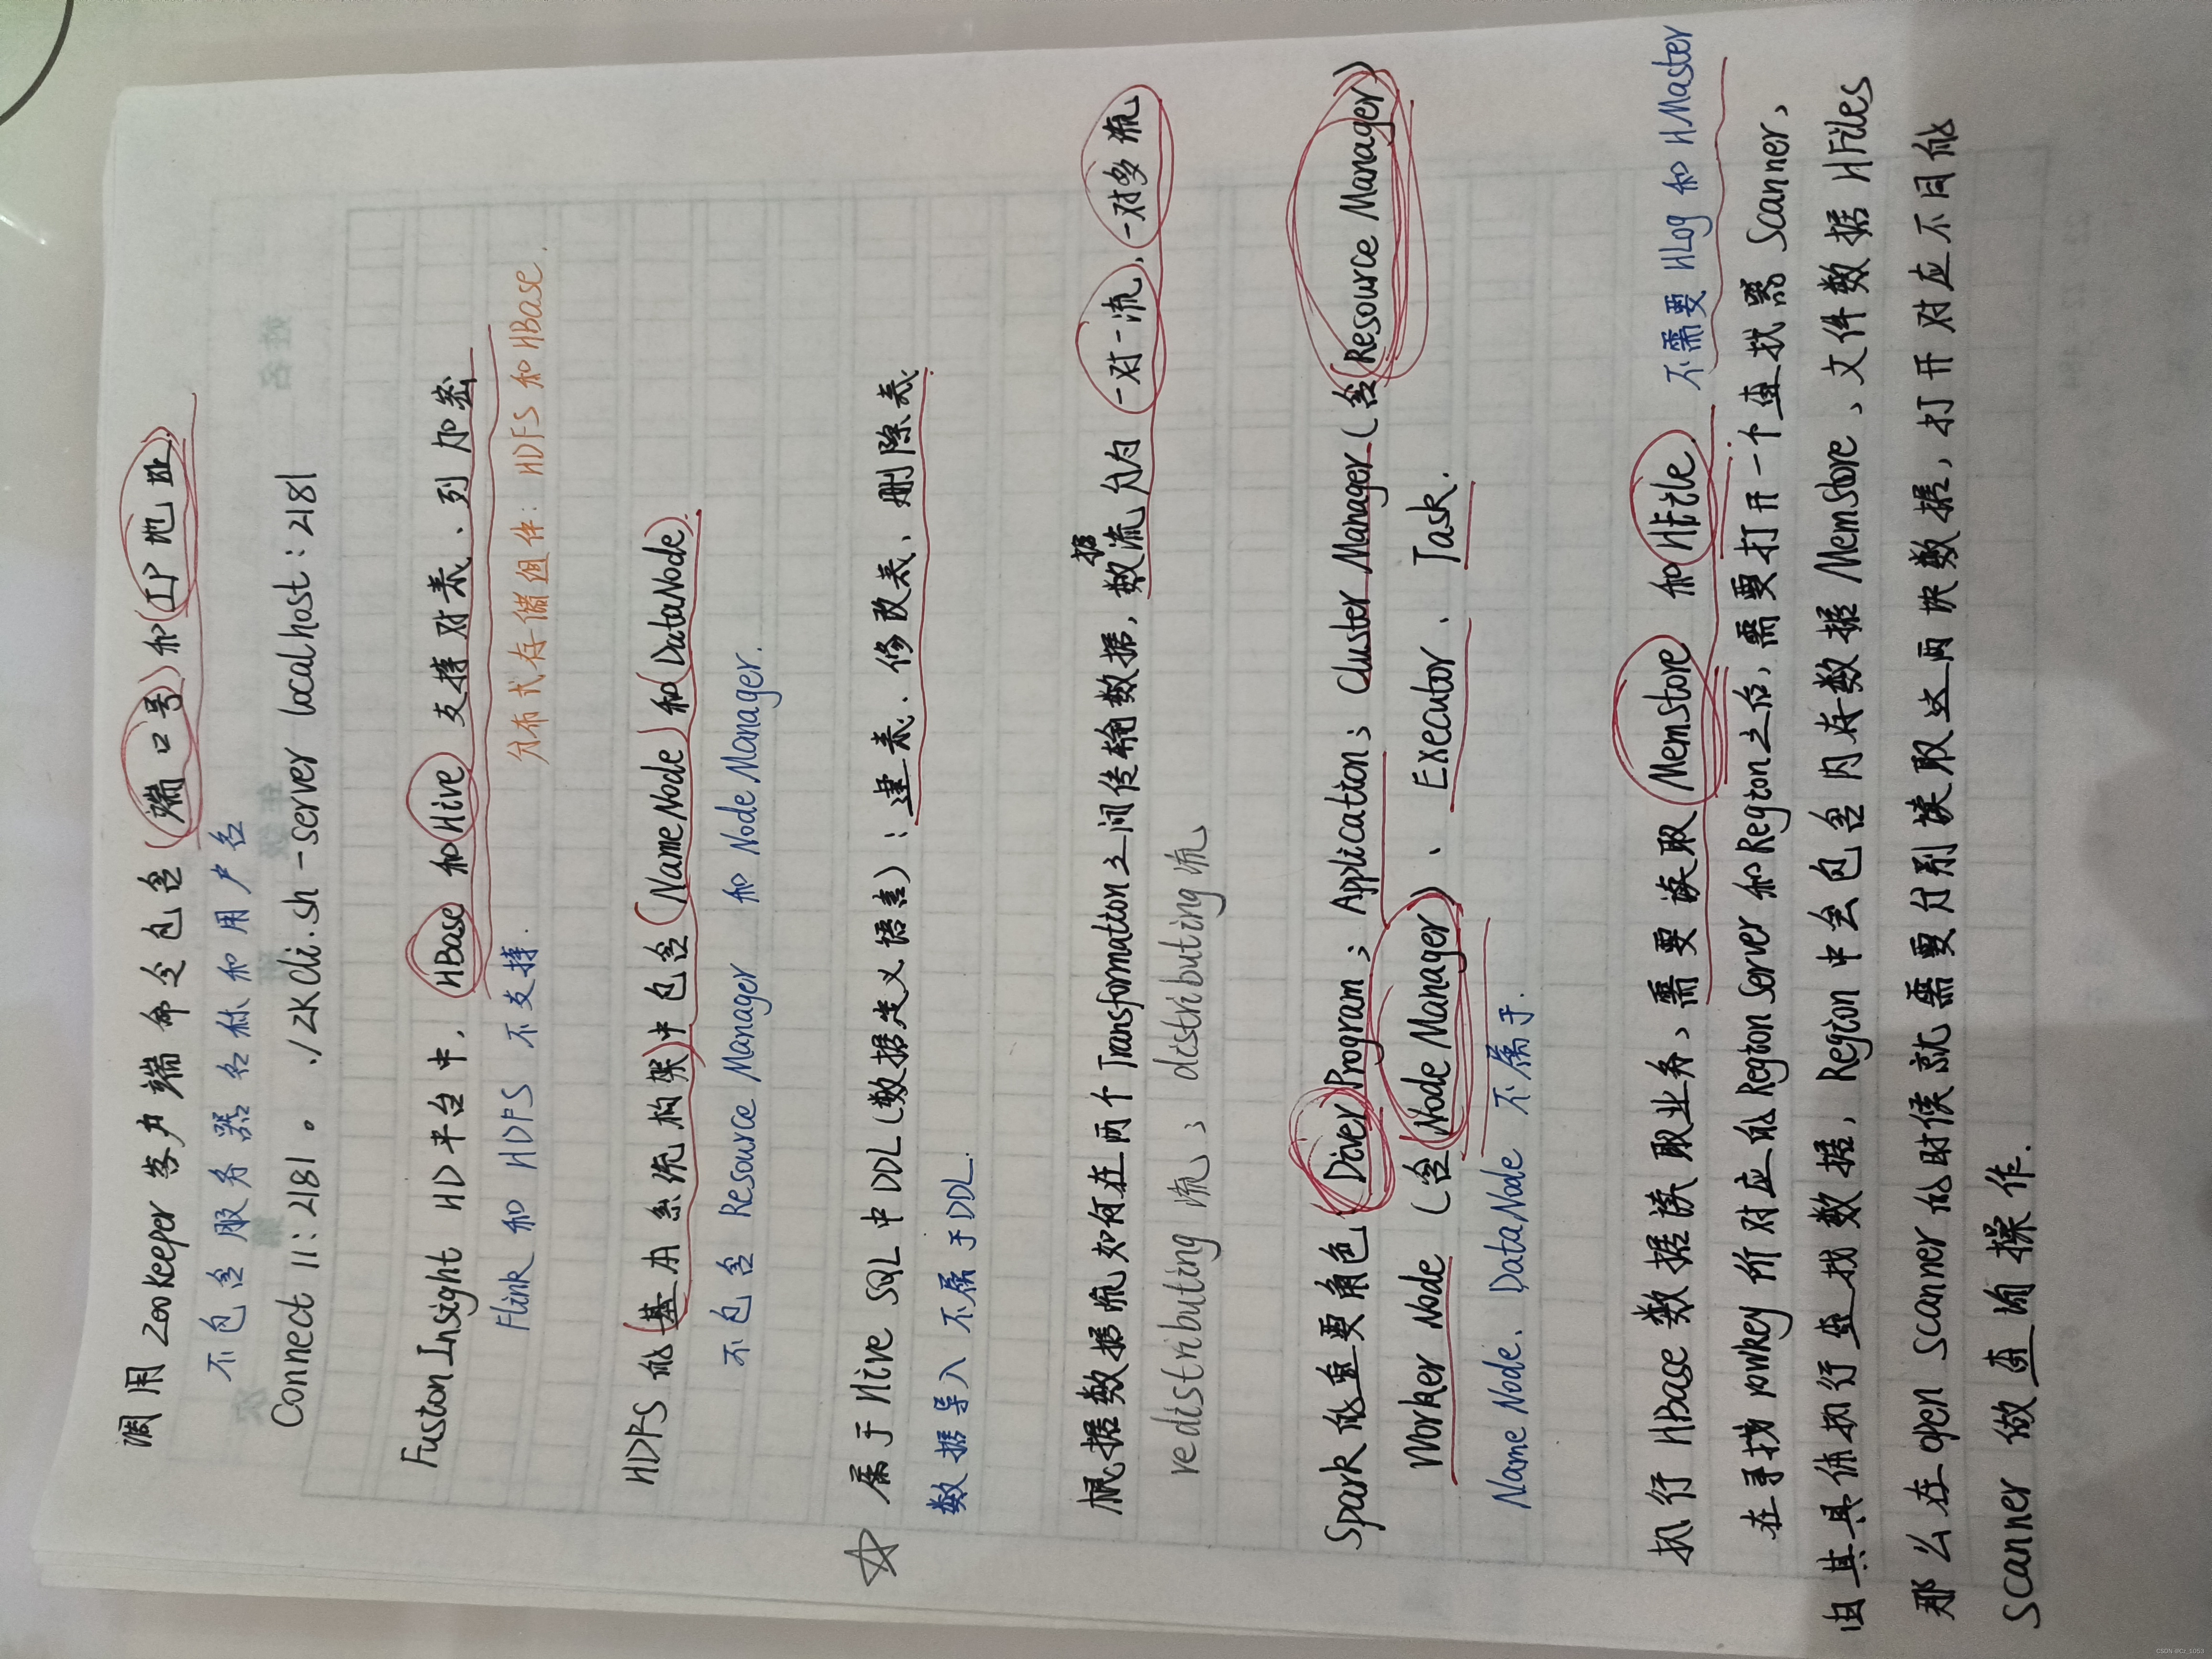 调用 ZooKeeper 客户端命令包含(端口号)和(IP地址)
不包含服务器名称和用户名
Connect 11:2181。 ./zkCli.sh -server localhost:2181
FusionInsight HD平台中,HBase 和 Hive 支持对表、列加密
Flink 和 HDFS 不支持. 分布式存储组件:HDFS 和 HBase.
HDFS 的(基本系统构架)中包含(NameNode)和(DataNode).
不包含 Resource Manager 和 Node Manager.
☆ 属于 Hive SQL 中 DDL(数据定义语言):建表、修改表、删除表.
数据导入不属于DDL.
根据数据流如何在两个Transformation之间传输数据,数据流分为一对一流、一对多流
redistributing 流; distributing 流
Spark的重要角色 Driver Program; Application; Cluster Manager(含Resource Manager)
Worker Node (含 Node Manager)、Executor、Task.
Name Node、DataNode 不属于.
执行 HBase 数据读取业务,需要读取 MemStore 和 HFile. 不需要 HLog 和 HMaster
在寻找 rowkey 所对应的Region Server 和Region之后,需要打开一个查找器 Scanner,
由其具体执行查找数据,Region中会包含内存数据 MemStore、文件数据 HFiles
那么在 open scanner 的时候就需要分别读取这两块数据,打开对应不同的
scanner 做查询操作.